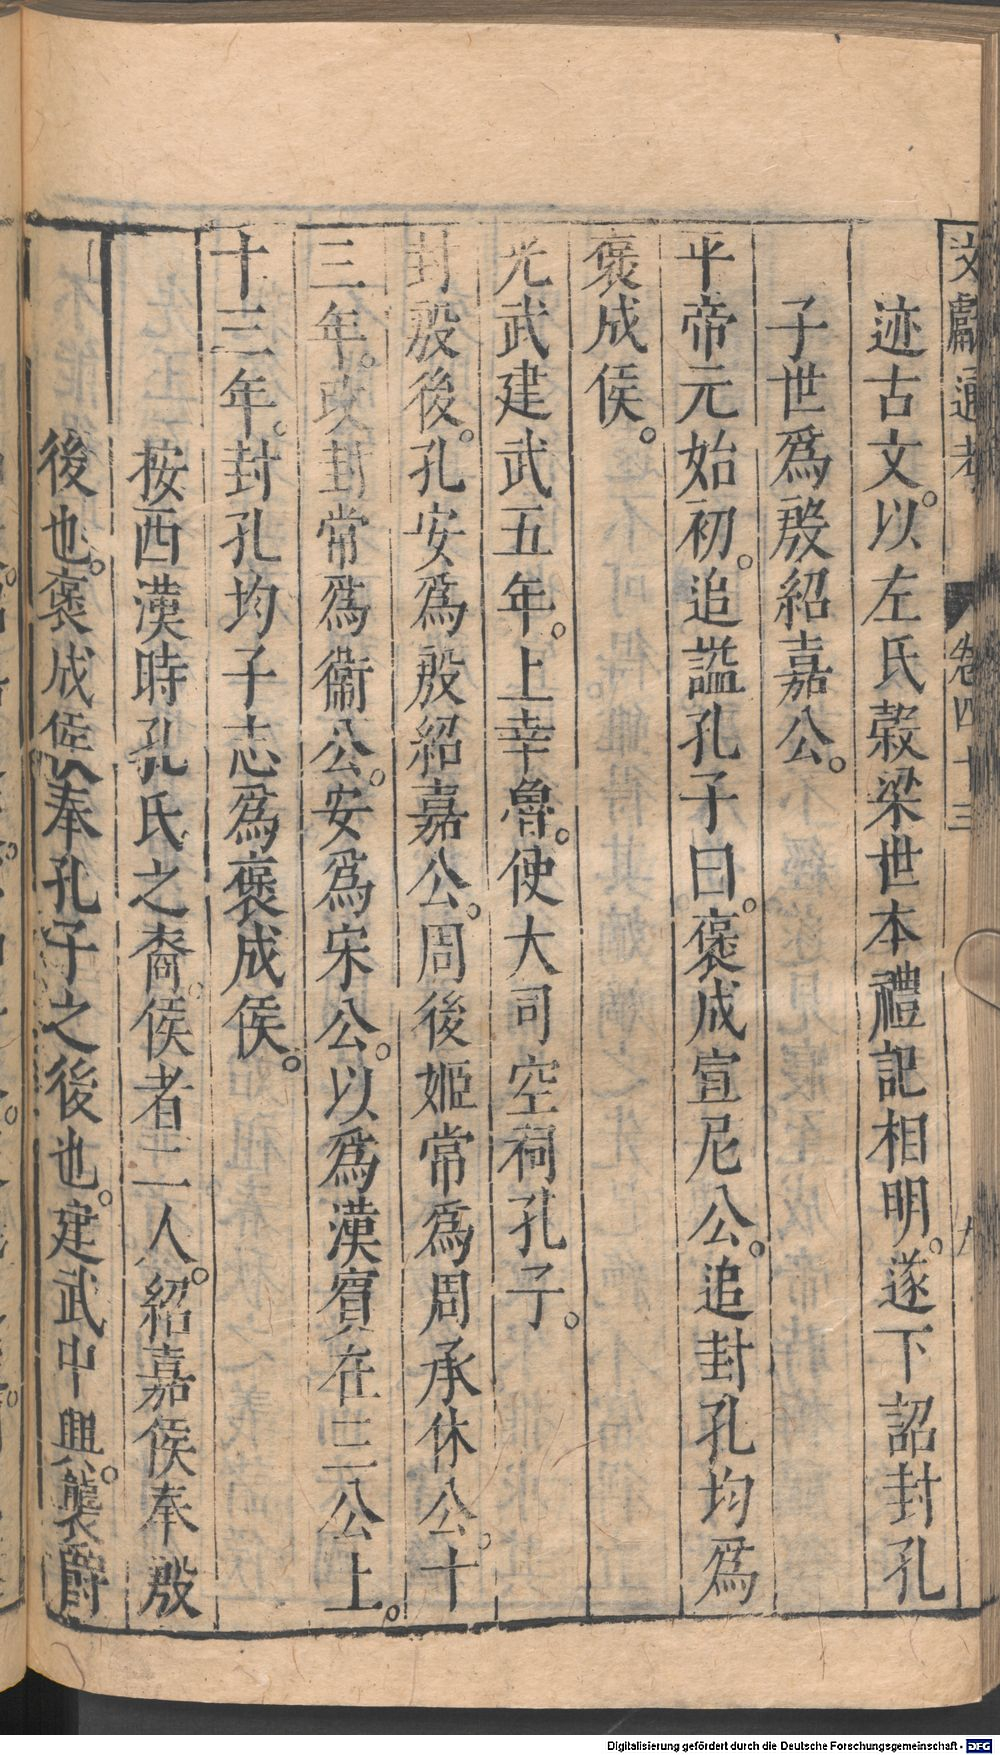 文獻通考 卷四十三 九
迹古文。以左氏穀梁世本禮記相明。遂下詔封孔
子世爲殷紹嘉公。
平帝元始初。追謚孔子曰。褒成宣尼公。追封孔均爲
褒成侯。
光武建武五年。上幸魯。使大司空祠孔子。
封殷後。孔安爲殷紹嘉公。周後姬常爲周承休公。十
三年。改封常爲衞公。安爲宋公。以爲漢賓在三公上。
十三年。封孔均子志爲褒成侯。
按西漢時孔氏之裔。侯者二人。紹嘉侯奉殷
後也。褒成侯奉孔子之後也。建武中興。襲爵
Digitalisierung gefördert durch die Deutsche Forschungsgemeinschaft - DFG